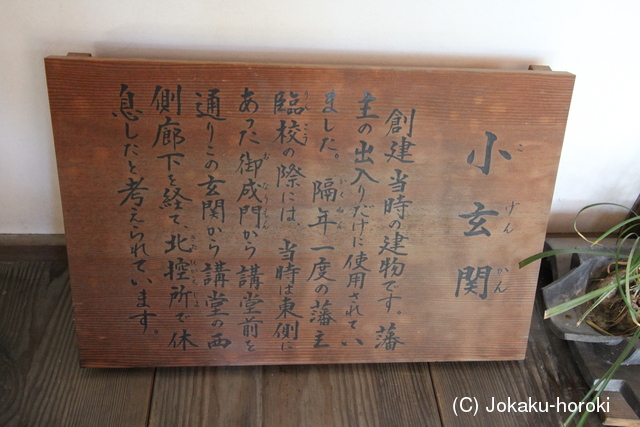 小玄関
こ げん かん
創建当時の建物です。藩
主の出入りだけに使用されてい
ました。隔年一度の藩主
臨校の際には、当時は東側に
あった御成門から講堂前を
通りこの玄関から講堂の西
側廊下を経て、北控所で休
息したと考えられています。
(C) Jokaku-horoki